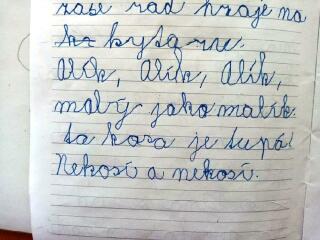 zase rád hraje na
kytaru.
Alík, Alík, Alík,
malý jako malík.
ta kosa je tupá!
Nekosí a nekosí.